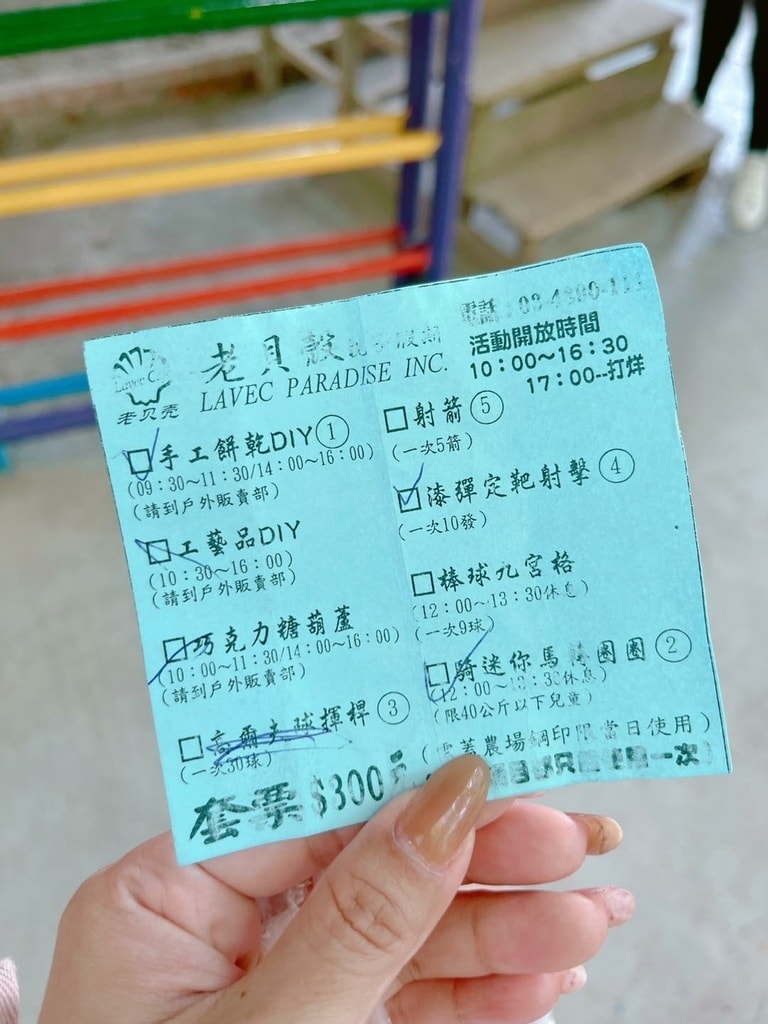 Lavec
老贝壳
老貝殼
LAVEC PARADISE INC.
活動開放時間
10:00~16:30
17:00--打烊
手工餅乾DIY①
(09:30~11:30/14:00~16:00)
(請到戶外販賣部)
工藝品DIY
(10:30~16:00)
(請到戶外販賣部)
巧克力糖葫蘆
(10:00~11:30/14:00~16:00)
(請到戶外販賣部)
高爾夫球揮桿③
(一次30球)
套票$300元
射箭⑤
(一次5箭)
漆彈定靶射擊④
(一次10發)
棒球九宮格
(12:00~13:30休息)
(一次9球)
騎迷你馬 圈圈②
(12:00~13:30休息)
(限40公斤以下兒童)
農場鋼印限當日使用)
一次)